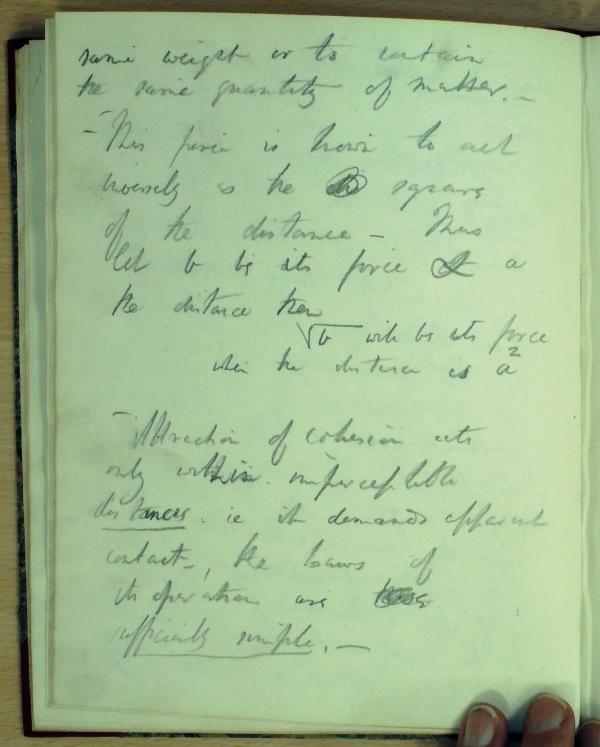 same weight or to contain
the same quantity of matter. —
– This force is known to act
inversely as the square
of the distance — Thus
let b be its force & a
the distance then
√b will be its force
when the distance is a²
– Attraction of cohesion acts
only within imperceptible
distances. ie it demands apparent
contact –, the laws of
its operation are
sufficiently simple. —